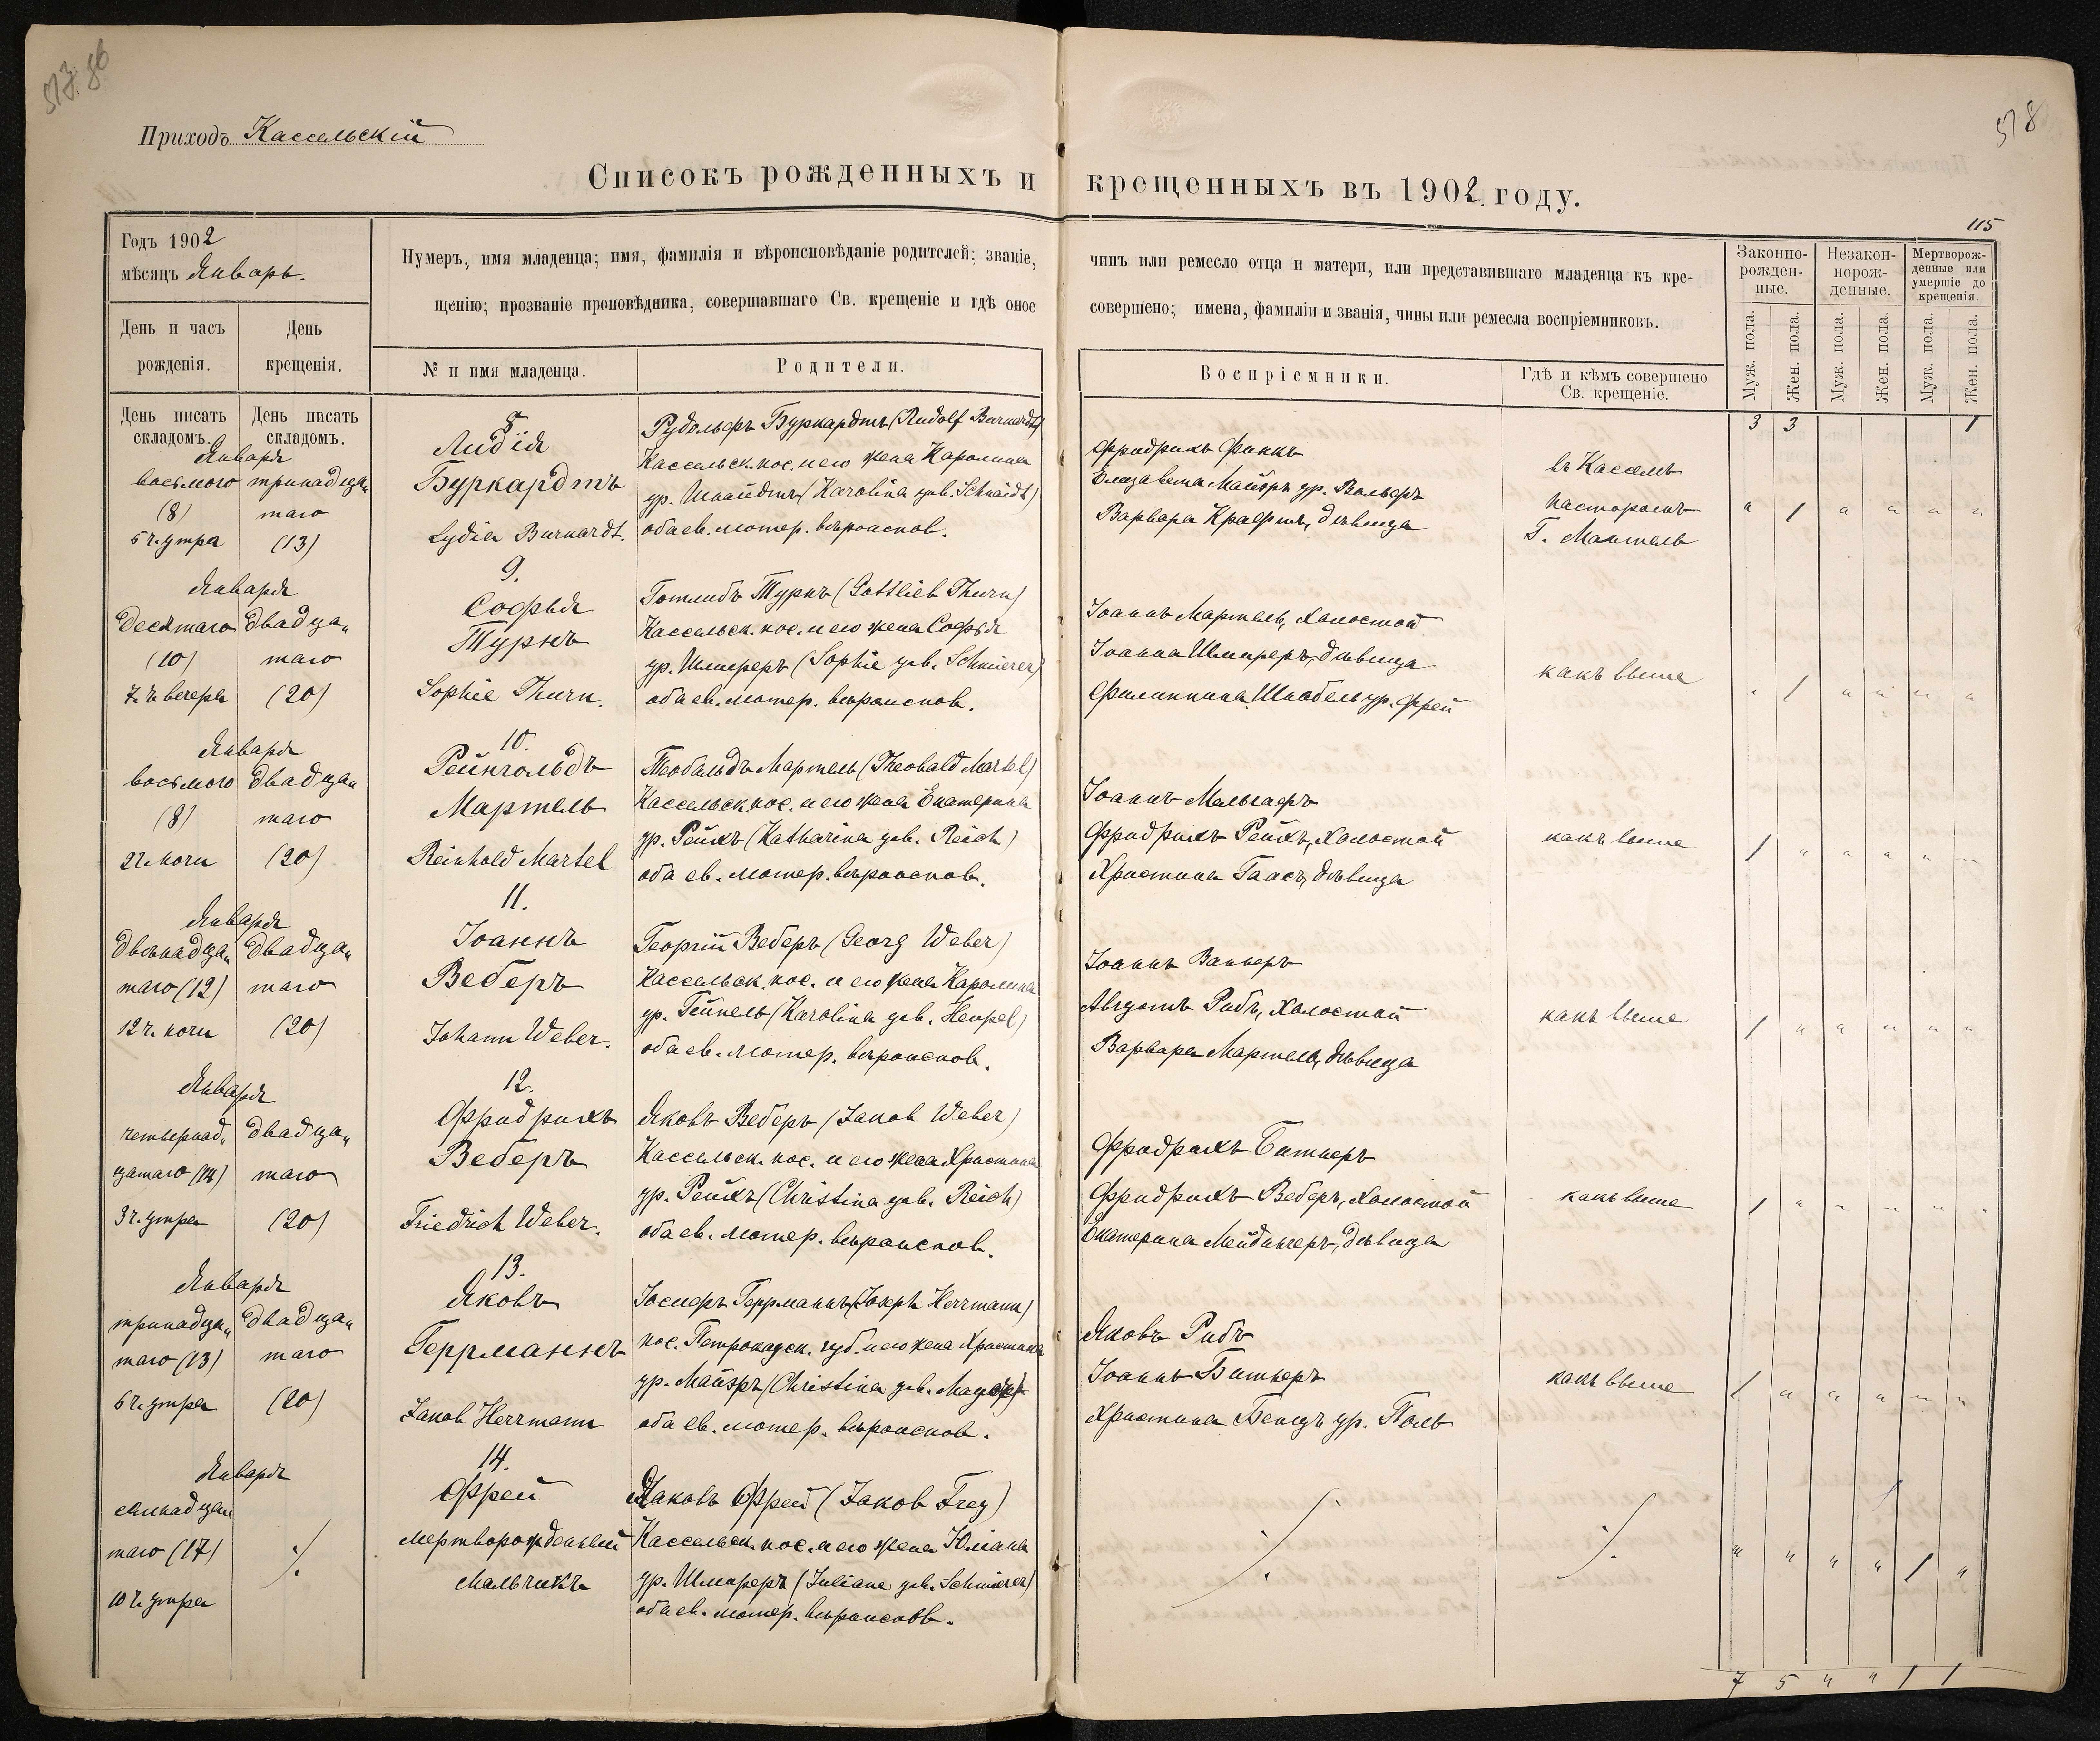 Приходъ Кассельскій
Списокъ рожденныхъ и крещенныхъ въ 1902 году.
115
Годъ 1902
мѣсяцъ Январь.
День и часъ рожденія.
День крещенія.
Нумеръ, имя младенца; имя, фамилія и вѣроисповѣданіе родителей; званіе, чинъ или ремесло отца и матери, или представившаго младенца къ кре-
щенію; прозваніе проповѣдника, совершавшаго Св. крещеніе и гдѣ оное совершено; имена, фамиліи и званія, чины или ремесла воспріемниковъ.
№ и имя младенца.
Родители.
Воспріемники.
Гдѣ и кѣмъ совершено
Св. крещеніе.
Законно-
рожден-
ные.
Незакон-
норож-
денные.
Мертворож-
денные или
умершіе до
крещенія.
Муж. пола.
Жен. пола.
Муж. пола.
Жен. пола.
Муж. пола.
Жен. пола.
День писать
складомъ.
День писать
складомъ.
3 3 1
Января
восьмого
(8)
5 ч. утра
тринадца„
таго
(13)
8
Лидія
Буркардтъ
Lydia Burkardt.
Рудольфъ Буркардтъ (Rudolf Burkardt)
Кассельск. пос. и его жена Каролина
ур. Шнайдтъ (Karolina geb. Schnaidt)
оба ев. лютер. вѣроиспов.
Фридрихъ Финкъ
Елизавета Майеръ ур. Вольфъ
Варвара Крафтъ, дѣвица
въ Касселѣ
пасторомъ
Г. Мантель
„ 1 „ „ „ „
Января
десятаго
(10)
7 ч. вечера
двадца„
таго
(20)
9.
Софья
Турнъ
Sophie Thurn.
Готлибъ Турнъ (Gottlieb Thurn)
Кассельск. пос. и его жена Софья
ур. Шмиреръ (Sophie geb. Schmierer)
оба ев. лютер. вѣроиспов.
Іоаннъ Мартель, холостой
Іоанна Шмиреръ, дѣвица
Филиппина Шнабель ур. Фрей
какъ выше
„ 1 „ „ „ „
Января
восьмого
(8)
2 ч. ночи
двадца„
таго
(20)
10.
Рейнгольдъ
Мартель
Reinhold Martel
Теобальдъ Мартель (Theobald Martel)
Кассельск. пос. и его жена Екатерина
ур. Рейхъ (Katharina geb. Reich)
оба ев. лютер. вѣроиспов.
Іоаннъ Мальгафъ
Фридрихъ Рейхъ, холостой
Христина Гаасъ, дѣвица
какъ выше
1 „ „ „ „ „
Января
двѣнадца„
таго (12)
12 ч. ночи
двадца„
таго
(20)
11.
Іоаннъ
Веберъ
Johann Weber.
Георгій Веберъ (Georg Weber)
Кассельск. пос. и его жена Каролина
ур. Гейпель (Karolina geb. Heupel)
оба ев. лютер. вѣроиспов.
Іоаннъ Ваннеръ
Августъ Рибъ, холостой
Варвара Мартель, дѣвица
какъ выше
1 „ „ „ „ „
Января
четырнад„
цатаго (14)
3 ч. утра
двадца„
таго
(20)
12.
Фридрихъ
Веберъ
Friedrich Weber.
Яковъ Веберъ (Jakob Weber)
Кассельск. пос. и его жена Христина
ур. Рейхъ (Christina geb. Reich)
оба ев. лютер. вѣроиспов.
Фридрихъ Битнеръ
Фридрихъ Веберъ, холостой
Екатерина Мейдингеръ, дѣвица
какъ выше
1 „ „ „ „ „
Января
тринадца„
таго (13)
6 ч. утра
двадца„
таго
(20)
13.
Яковъ
Геррманнъ
Jakob Herrmann
Іосифъ Геррманнъ (Joseph Herrmann)
пос. губ. и его жена Христина
ур. Майэръ (Christina geb. Mayer)
оба ев. лютер. вѣроиспов.
Яковъ Рибъ
Іоаннъ Битнеръ
Христина Бенцъ ур. Поль
какъ выше
1 „ „ „ „ „
Января
семнадца„
таго (17)
10 ч. утра
14.
Фрей
мертворожденный
мальчикъ
Яковъ Фрей (Jakob Frey)
Кассельск. пос. и его жена Юліана
ур. Шмиреръ (Juliane geb. Schmierer)
оба ев. лютер. вѣроиспов.
„ „ „ „ 1 „
7 5 „ „ 1 1